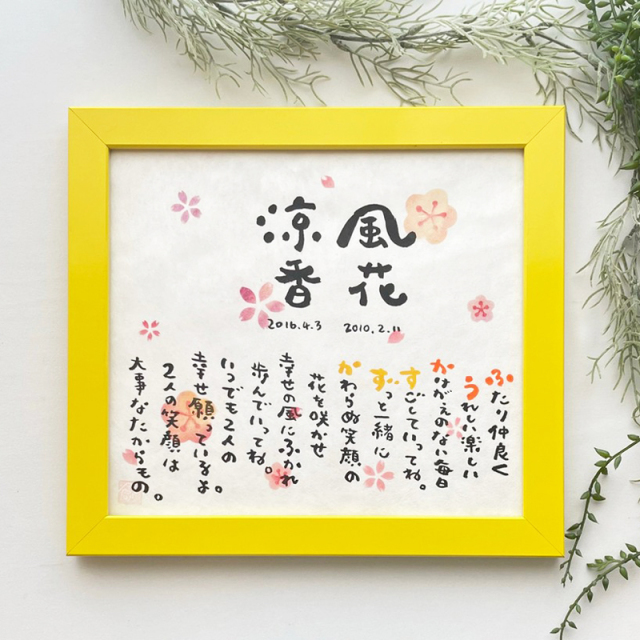 風花
2010.2.11
涼香
2016.4.3
ふたり仲良く
うれしい楽しい
かけがえのない毎日
すごしていってね。
ずっと一緒に
かわらぬ笑顔の
花を咲かせ
幸せの風にふかれ
歩んでいってね。
いつでも2人の
幸せ願っているよ。
2人の笑顔は
大事なたからもの。